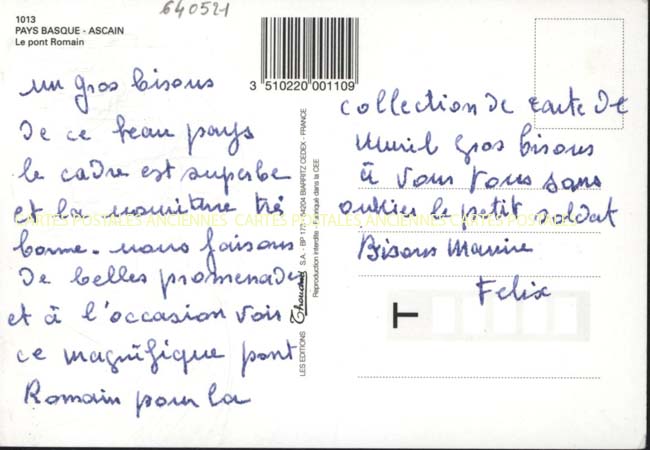 640521
1013
PAYS BASQUE - ASCAIN
Le pont Romain
3 510220 001109
un gros bisous
de ce beau pays
le cadre est superbe
et la nouriture tré
bonne. nous faisons
de belles promenades
et à l'occasion voir
ce magnifique pont
Romain pour la
collection de carte de
Muriel gros bisous
à vous tous sans
oublier le petit soldat
Bisous
Felix
LES EDITIONS S.A. - BP 177 - 64204 BIARRITZ CEDEX - FRANCE
Reproduction interdite Fabriqué dans la CEE
T
CARTES POSTALES ANCIENNES CARTES POSTALES ANCIENNES CARTES POSTALES ANCIENNES